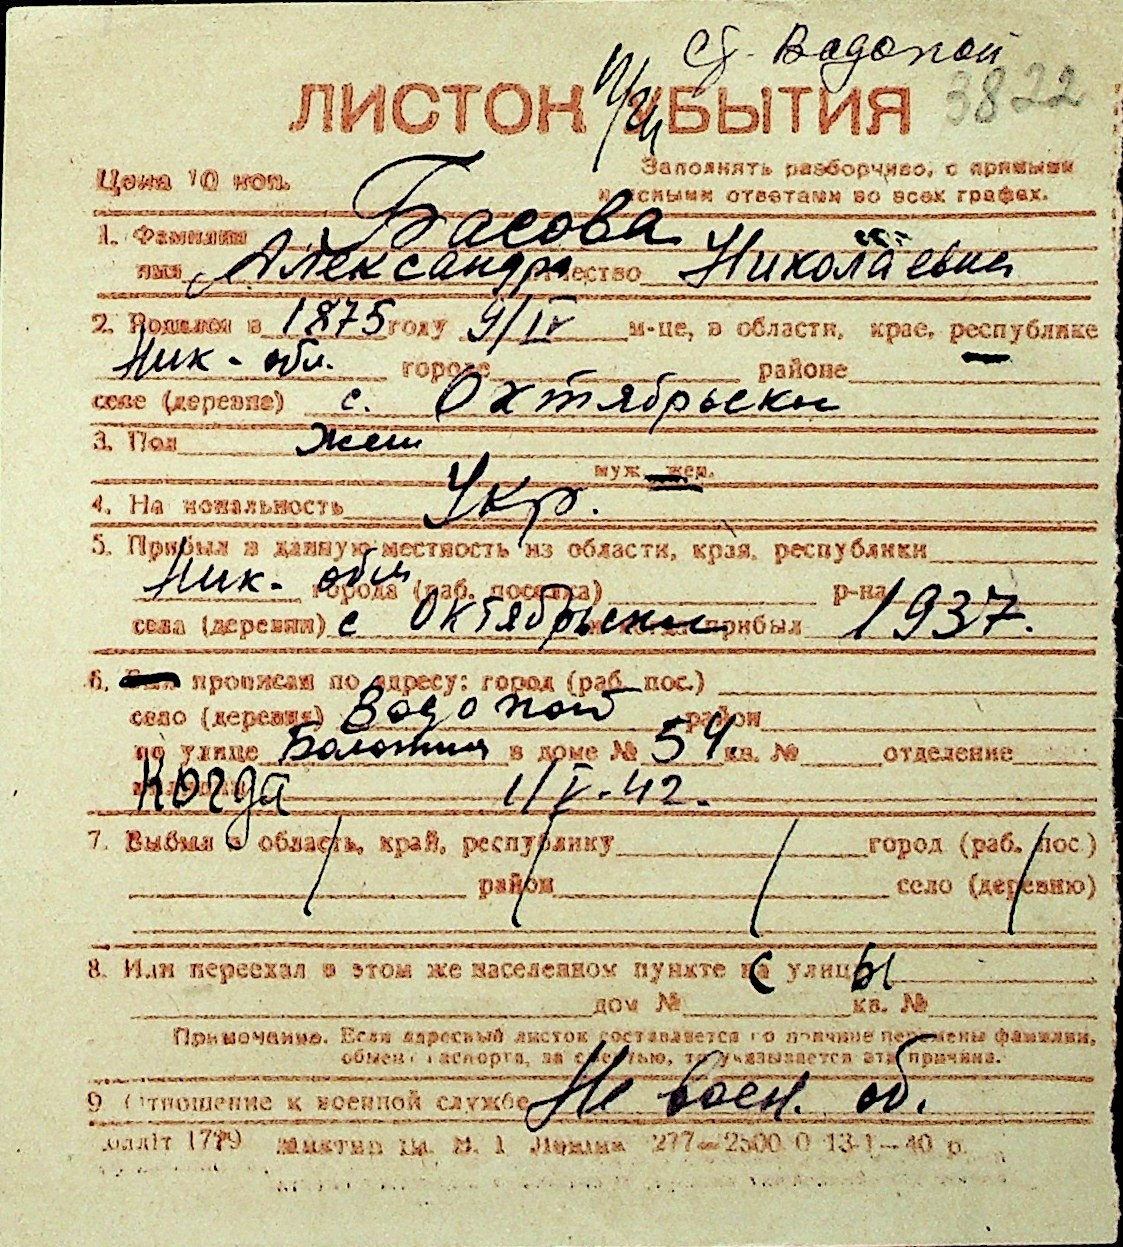 ст. Водопой
3822
ЛИСТОК УБЫТИЯ
Цена 10 коп.
Заполнять разборчиво, с прямыми
и ясными ответами во всех графах.
1. Фамилия Басова
имя Александра отчество Николаевна
2. Родился в 1875 году 9/IV м-це, в области, крае, республике
Ник - обл. городе районе
селе (деревне) с. Октябрьски
3. Пол жен
муж. жен.
4. Национальность Укр.
5. Прибыл в данную местность из области, края, республики
Ник - обл города (раб. поселка) р-на
села (деревни) с Октябрьски прибыл 1937.
6. прописан по адресу: город (раб. пос.)
село (деревня) Водопой район
по улице в доме № 54 кв. № отделение
милиции Когда 1/V-42.
7. Выбыл в область, край, республику город (раб. пос.)
район село (деревню)
8. Или переехал в этом же населенном пункте на улицу
дом № кв. №
Примечание. Если адресный листок составляется по причине перемены фамилии,
обмена паспорта, за смертью, то указывается эта причина.
9 Отношение к военной службе Не воен. об.
1779 277—2500 0 13-I—40 р.